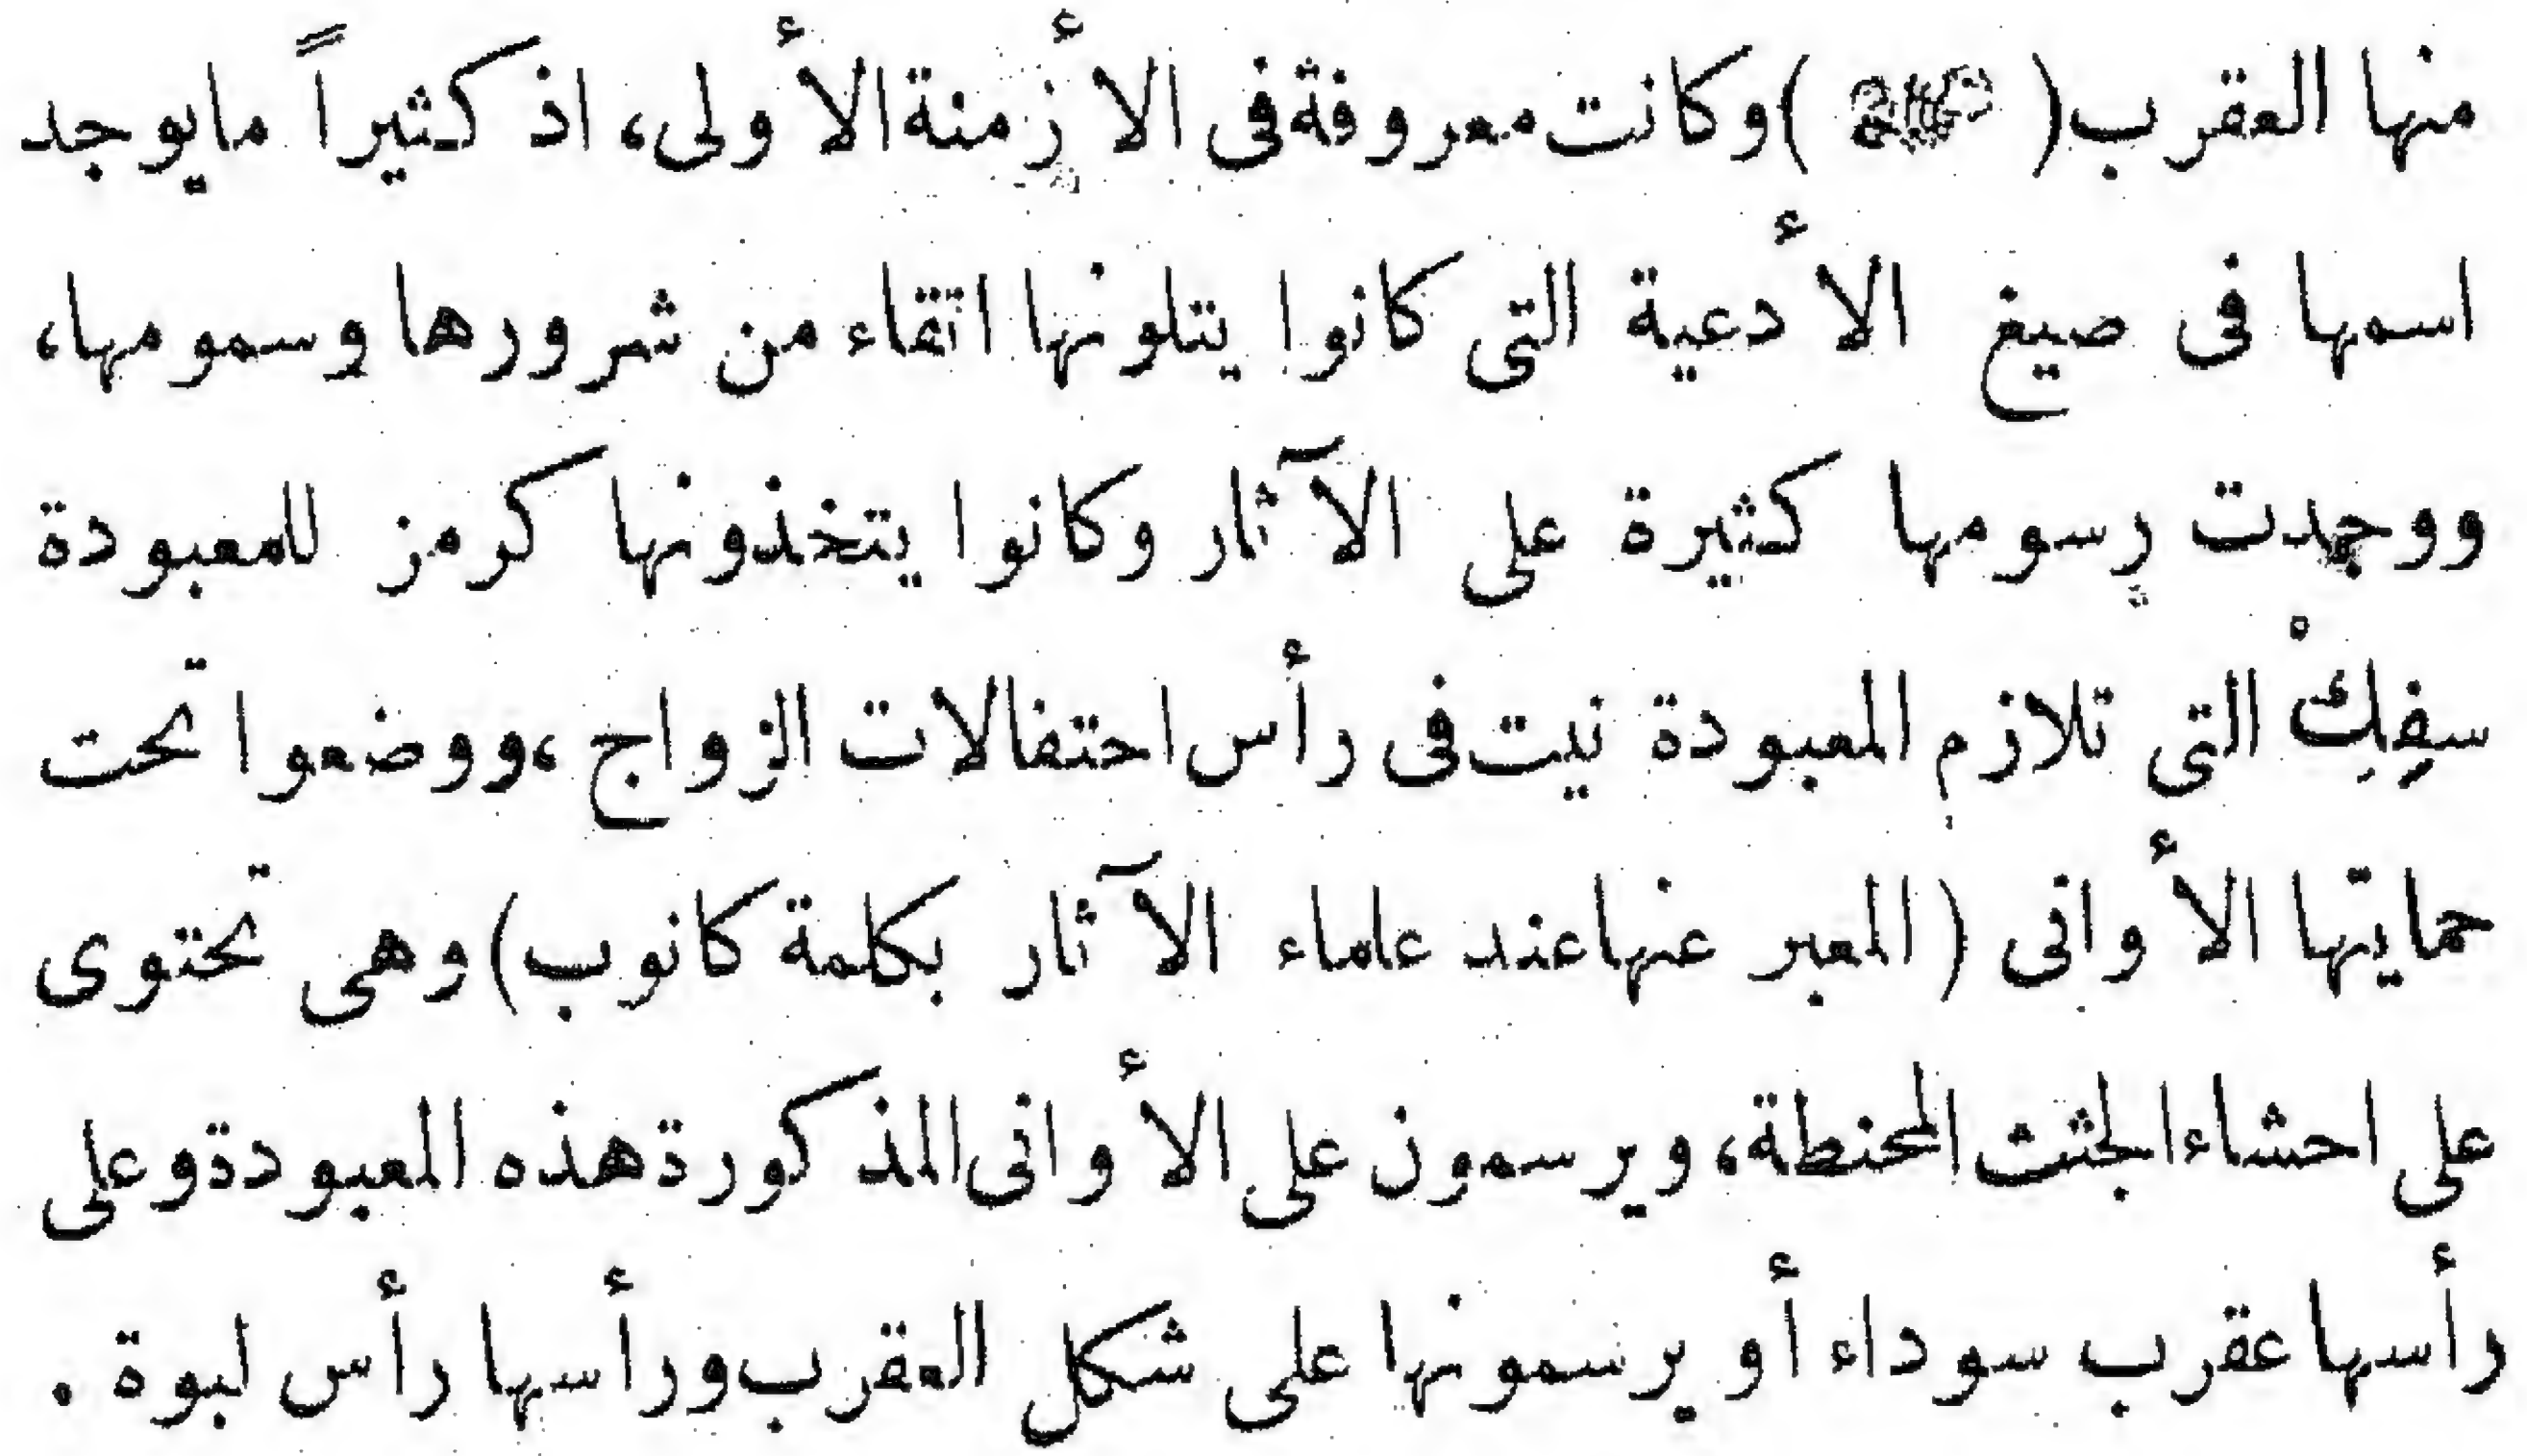 منها العقرب ( ) وكانت معروفة فى الأزمنة الأولى، اذ كثيراً مايوجد
اسمها فى صيغ الأدعية التى كانوا يتلونها اتقاء من شرورها وسمومها،
ووجدت رسومها كثيرة على الآثار وكانوا يتخذونها كرمز للمعبودة
سفِكْ التى تلازم المعبودة نيت فى رأس احتفالات الزواج ،ووضعوا تحت
حمايتها الأوانى (المعبر عنها عند علماء الآثار بكلمة كانوب) وهى تحتوى
على احشاء الجثث المحنطة، ويرسمون على الأوانى المذكورة هذه المعبودة وعلى
رأسها عقرب سوداء أو يرسمونها على شكل العقرب ورأسها رأس لبوة .